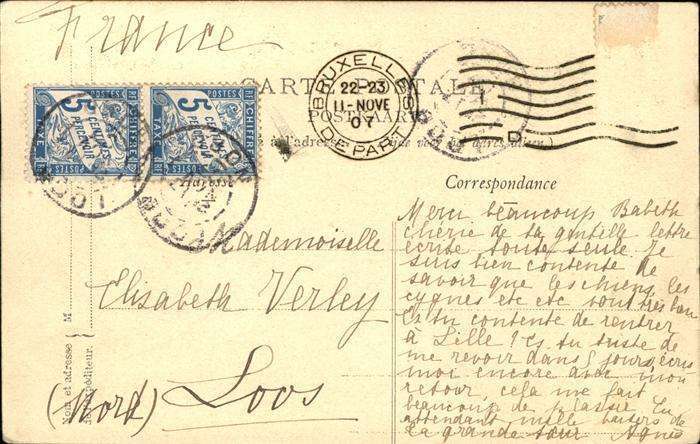 France
CARTE POSTALE
POSTKAART
BRUXELLES
22-23
11-NOVE
07
DEPART
D
5
CENTIMES
A PERCEVOIR
CHIFFRE
TAXE
POSTES
5
CENTIMES
A PERCEVOIR
CHIFFRE
TAXE
POSTES
LOOS
LOOS
NORD
Adresse
Mademoiselle
Elisabeth Verley
Loos
(Nord)
Nom et adresse
de l'expéditeur.
M
Correspondance
Merci beaucoup Babeth
chérie de ta gentille lettre
écrite toute seule. Je
suis bien contente de
savoir que les chiens, les
cygnes etc etc sont très bien
Es tu contente de rentrer
à Lille ? Es tu triste de
me revoir dans 5 jours, écris
moi encore avt mon
retour, cela me fait
beaucoup de plaisir. En
attendant mille baisers de
ta grande sœur Agnès